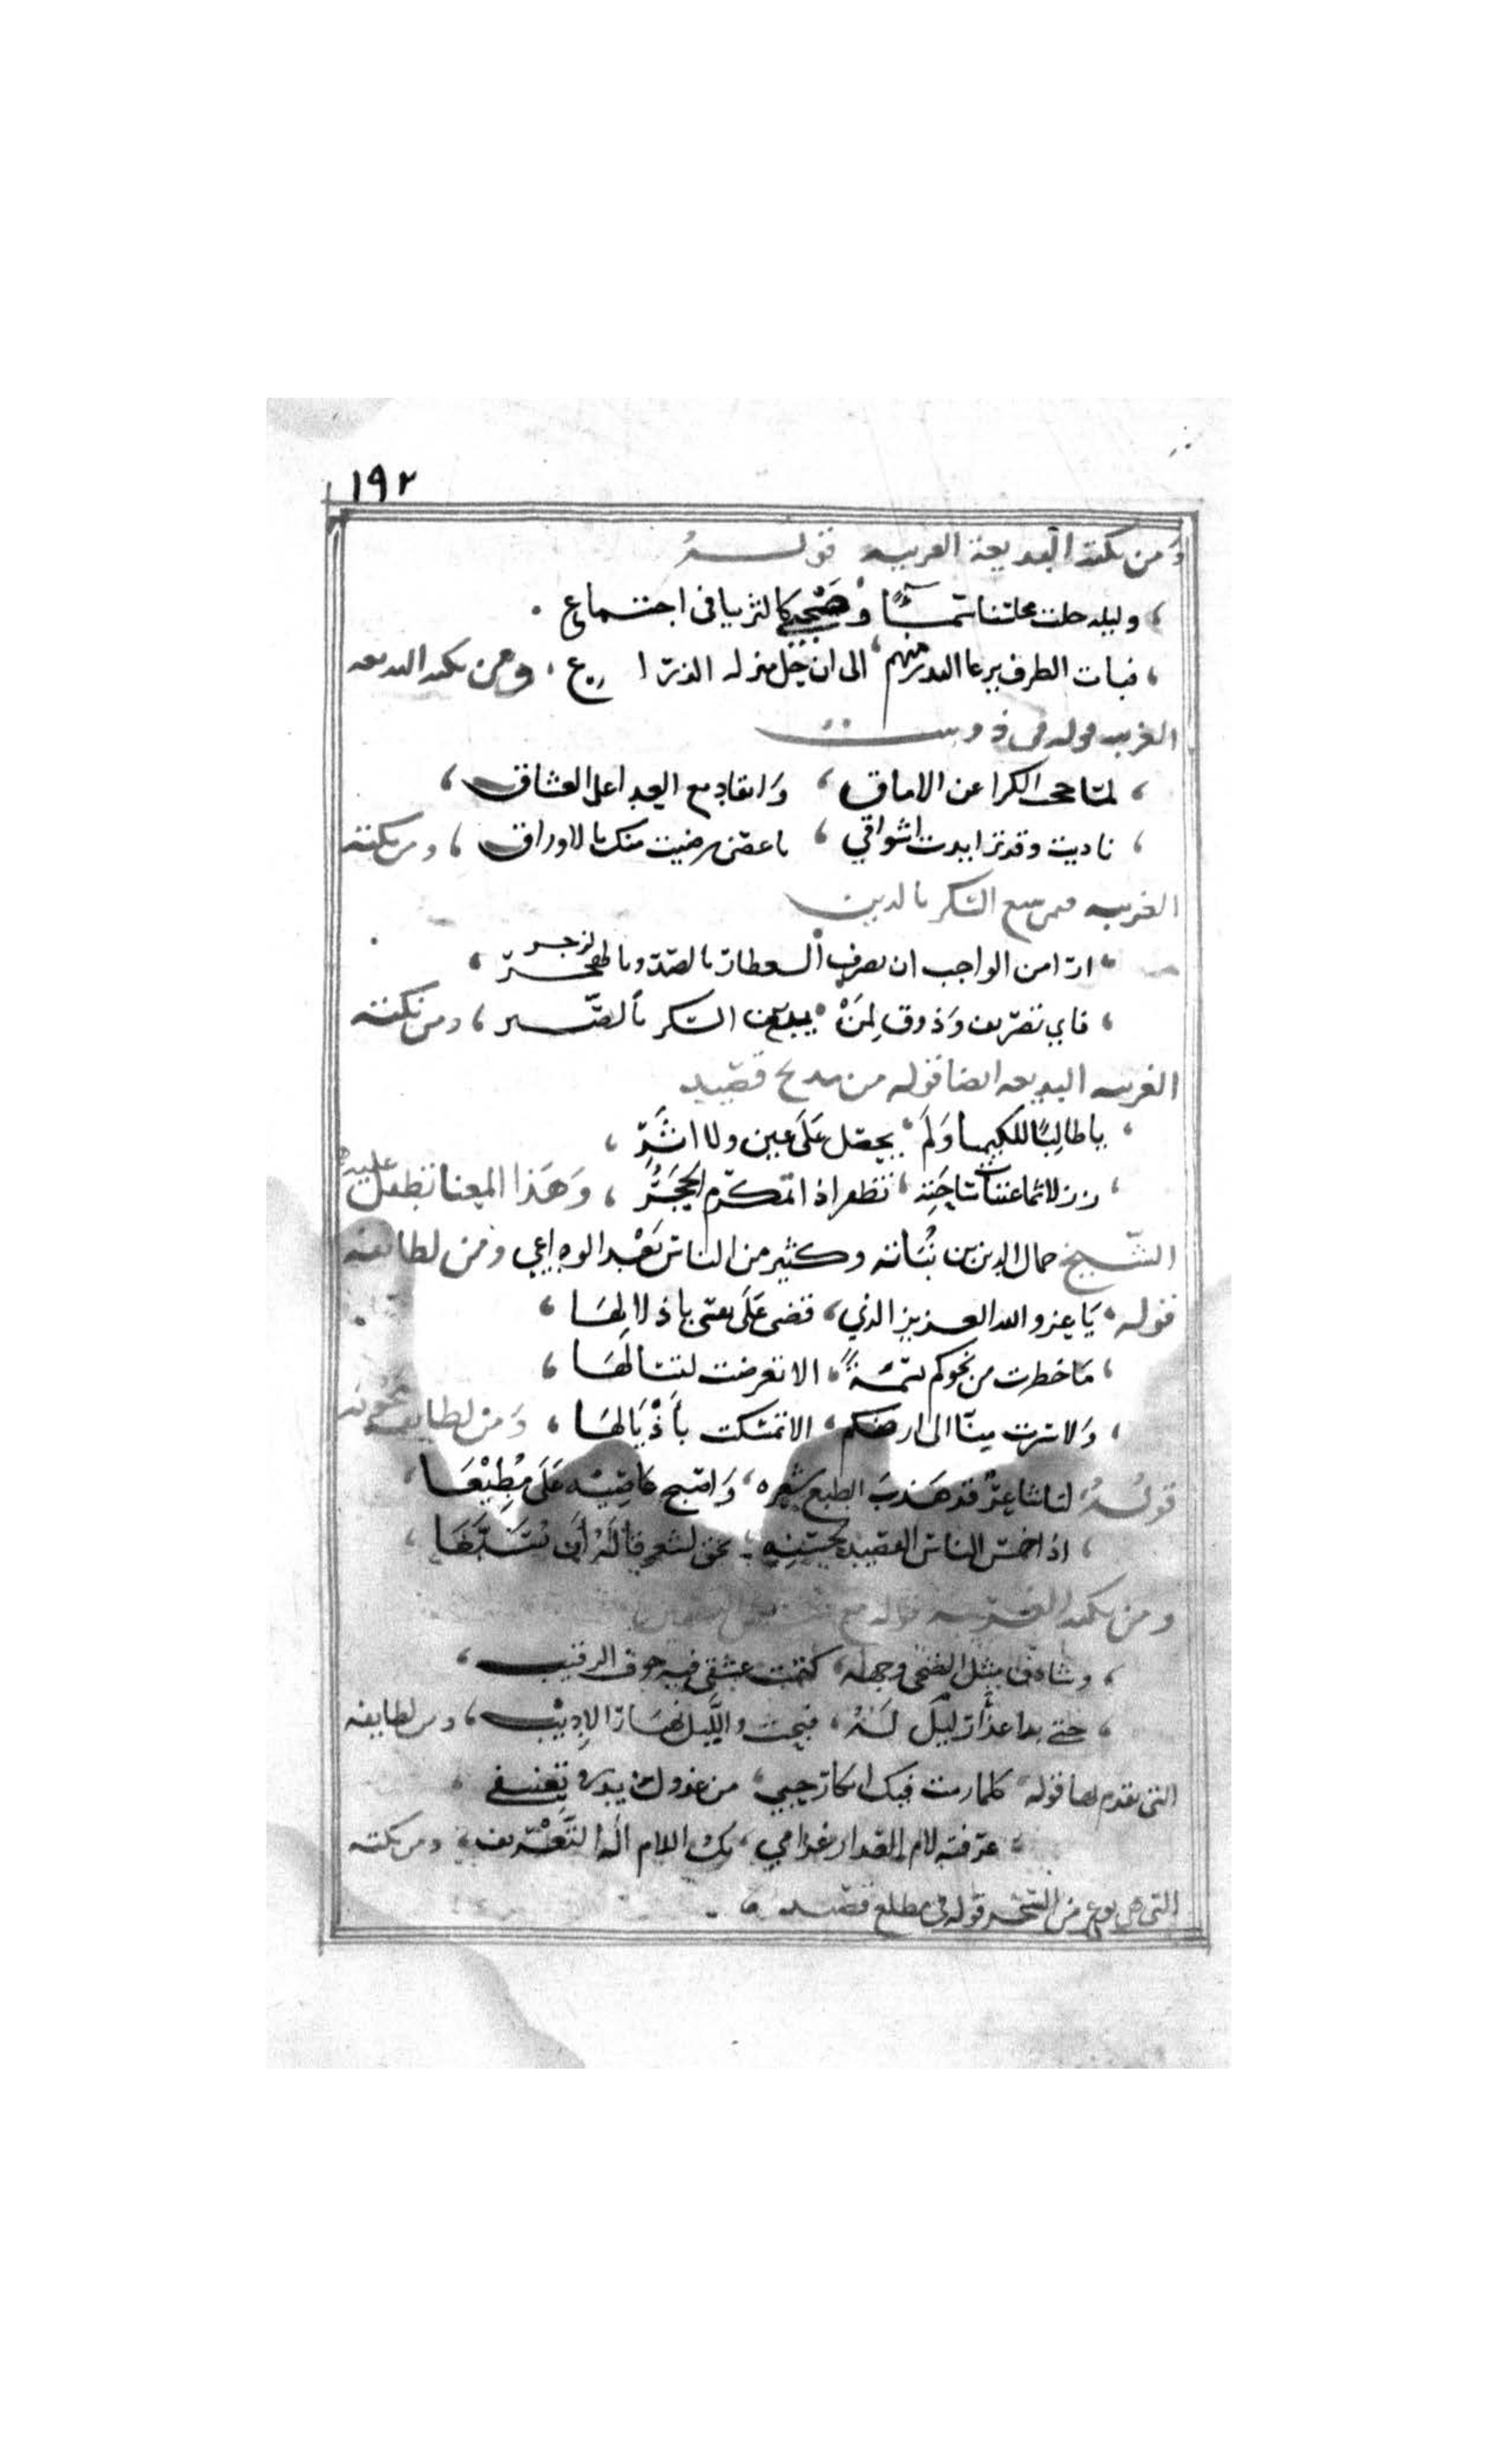 ١٩٢
ومن نكته البديعة الغريبه قولــه
وليله حلت محلتنا سمــاءً وصحبي كالثريا في اجتــماع
فبات الطرف يرعا البدر منهم الى ان حل منزله الذرا ع ومن نكته البديعه
الغريبه قوله في
لمّا محى الكرا عن الاماق وانقاد مع العدا على العشاق
ناديت وقد تزايدت اشواقي يا غصن رضيت منك بالاوراق ومن نكته
الغريبه فيمن يبيع السكر بالدين
ارا من الواجب ان يصرف العطار بالصد وبالهجر
فاي تصريف وذوق لمن يبيع السكر بالصبــر ومن نكته
الغريبه البديعه ايضا قوله من مديح قصيد
يا طالبًا للكيميا ولم يحصل على عين ولا اثر
تظفر اذا بالمكرم الحجر وهذا المعنا تطفل عليه
الشيخ جمال الدين بن نباته وكثير من الناس بعد الوداعي ومن لطائفه
قوله يا عز والله العزيز الذي قضى على بعتي باذلالها
ما خطرت من نحوكم نسمةً الا تعرضت لتسالها
ولا سرت منا الى ارضكم الا تمسكت باذيالها ومن لطايف مجونه
قوله لنا شاعر قد هذب الطبع شعره واصبح عاصيه على مطيعها
اذا خمس الناس القصيد لحسنه بحق لشعر قاله ان
ومن نكته الغريبه قوله مع
وشادن مثل الضحى وجهه كتمت عشقي فيه خوف الرقيب
حتى بدا عذار ليل له فبحت والليل نهار الاديب ومن لطايفه
التي تقدم بها قوله كلما رمت فيك انكار حبي من عذول يروم تعنيفي
عرفته لام العذار غرامي تلك اللام الة التعريف ومن نكته
التي هي نوع من السحر قوله في مطلع قصيد